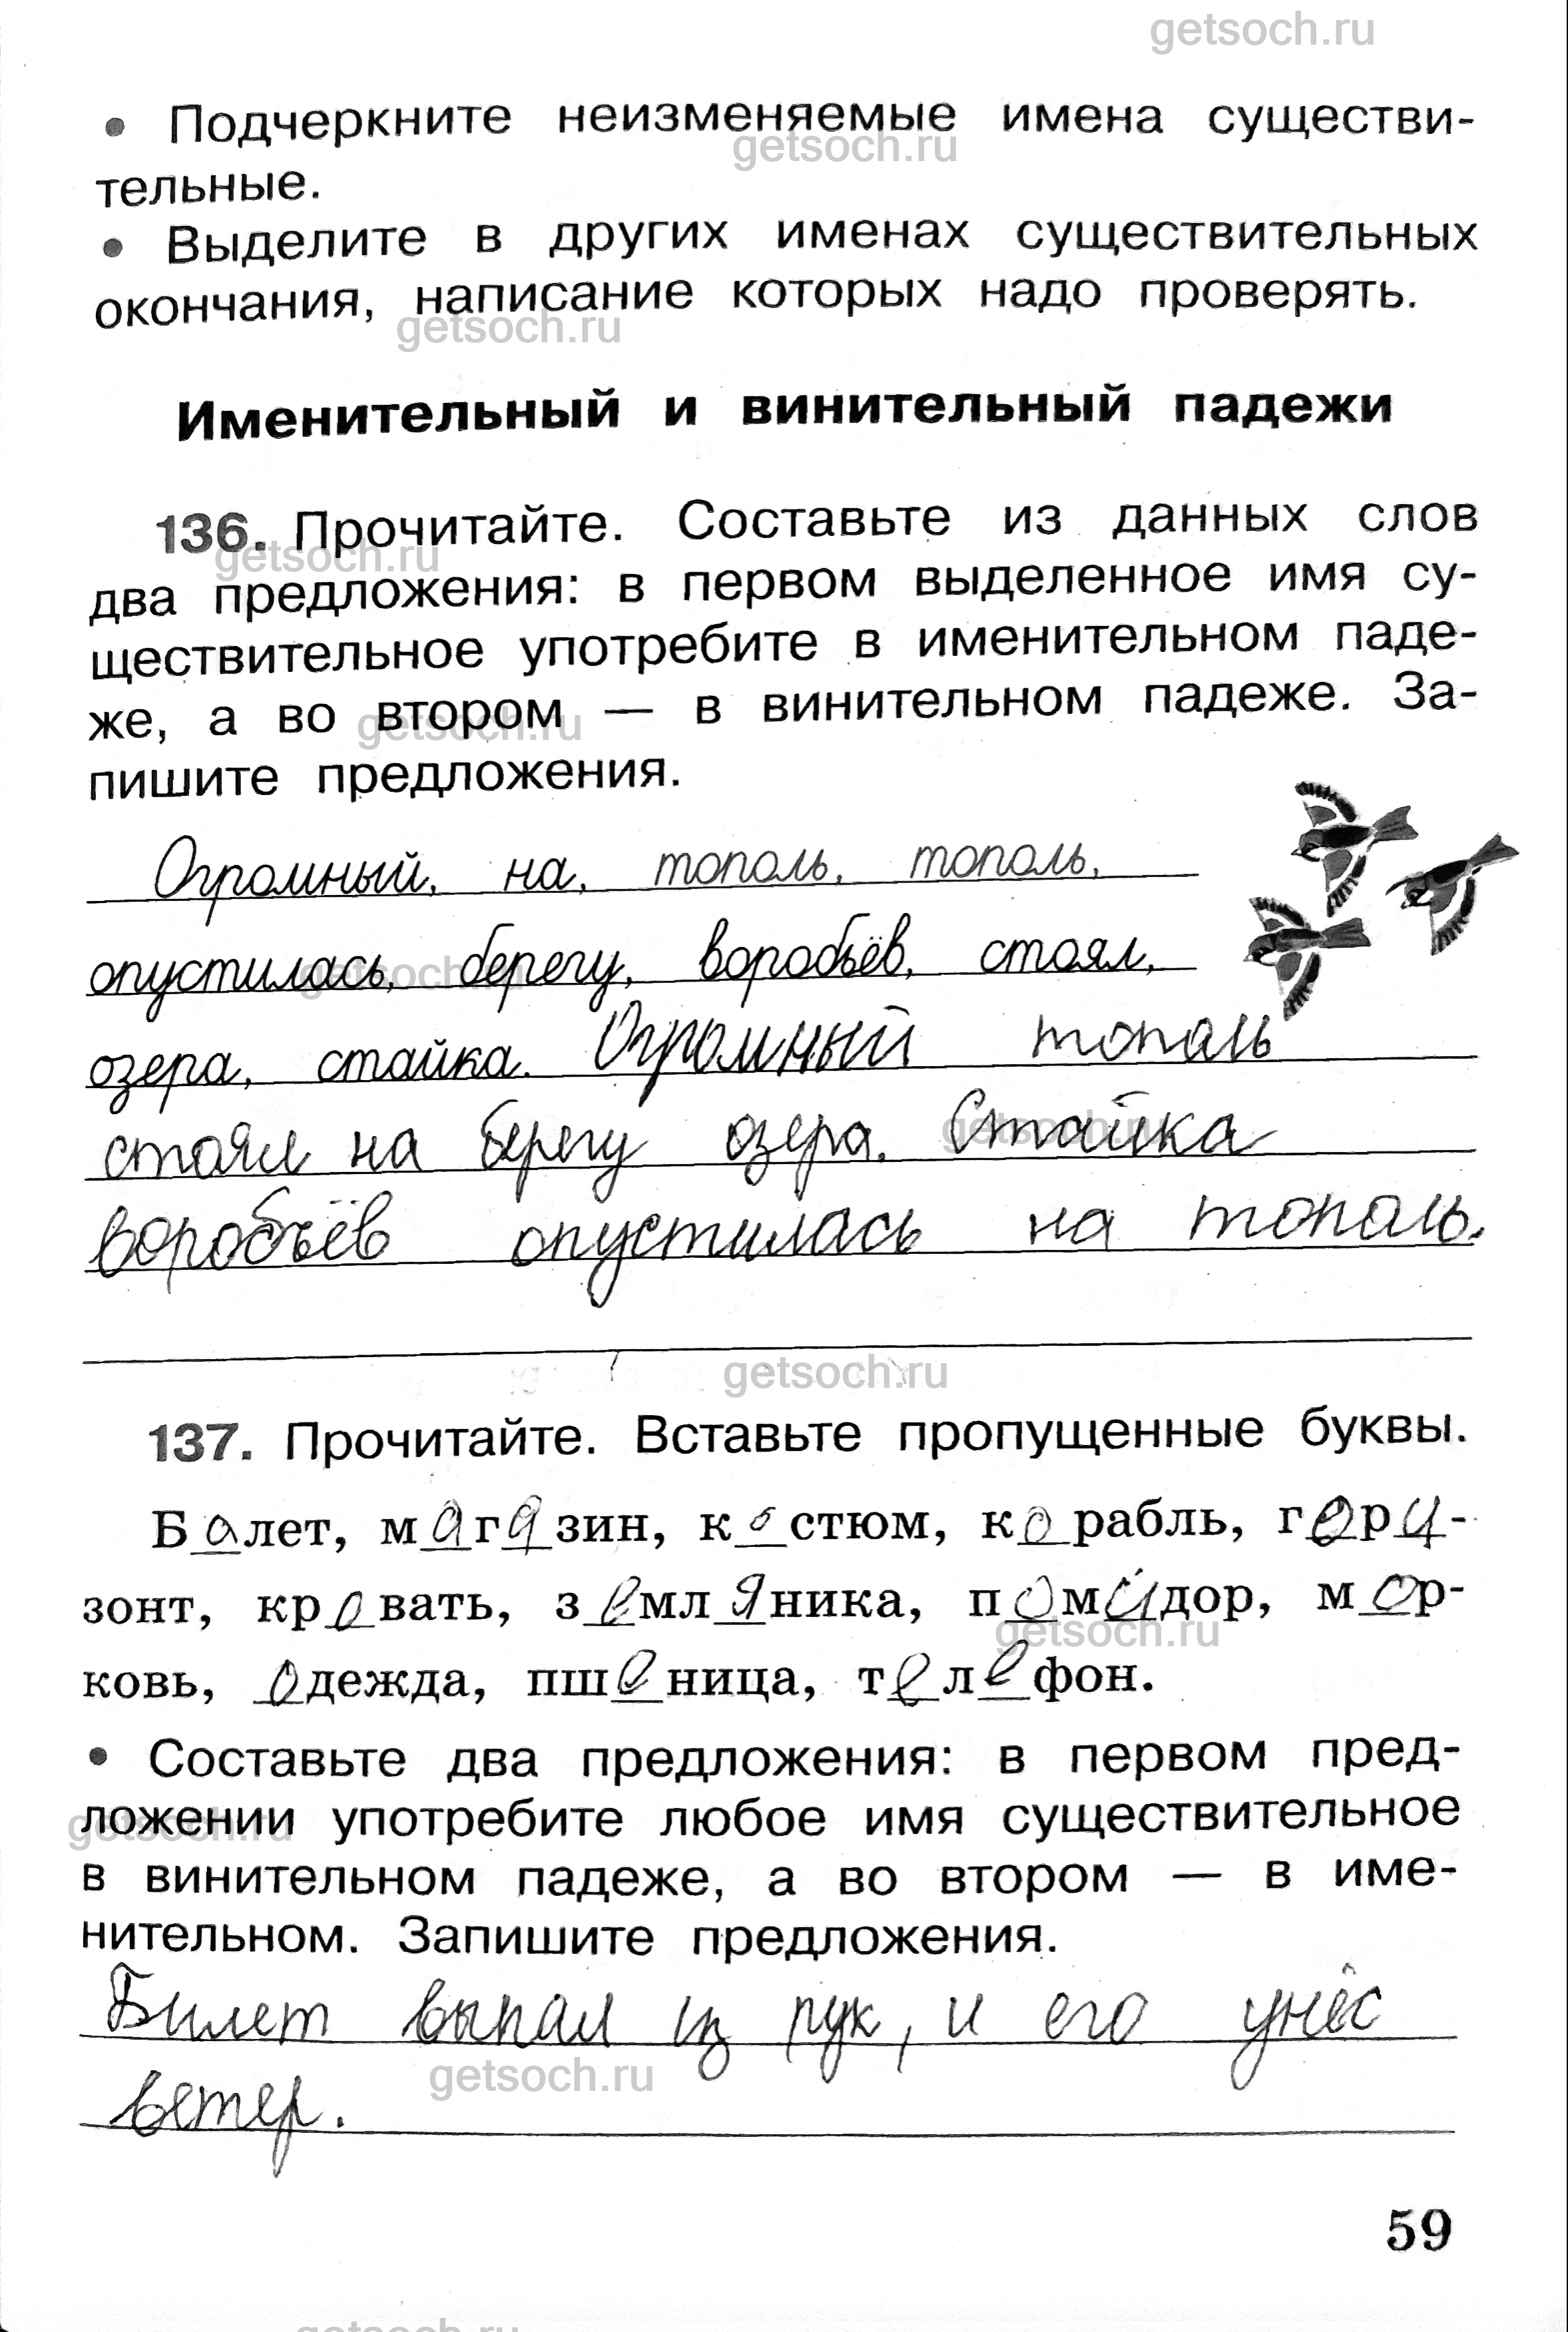 getsoch.ru
• Подчеркните неизменяемые имена существи-
getsoch.ru
тельные.
• Выделите в других именах существительных
окончания, написание которых надо проверять.
getsoch.ru
Именительный и винительный падежи
136. Прочитайте. Составьте из данных слов
getsoch.ru
два предложения: в первом выделенное имя су-
ществительное употребите в именительном паде-
же, а во втором — в винительном падеже. За-
getsoch.ru
пишите предложения.
Огромный, на, тополь, тополь,
опустилась, берегу, воробьёв, стоял,
getsoch.ru
озера, стайка. Огромный тополь
стоял на берегу озера. Стайка
getsoch.ru
воробъёв опустилась на тополь.
getsoch.ru
137. Прочитайте. Вставьте пропущенные буквы.
Балет, магазин, костюм, корабль, гори-
зонт, кровать, земляника, помидор, мор-
getsoch.ru
ковь, одежда, пшеница, телефон.
• Составьте два предложения: в первом пред-
ложении употребите любое имя существительное
getsoch.ru
в винительном падеже, а во втором — в име-
нительном. Запишите предложения.
Билет выпал из рук, и его унёс
getsoch.ru
ветер.
59
getsoch.ru